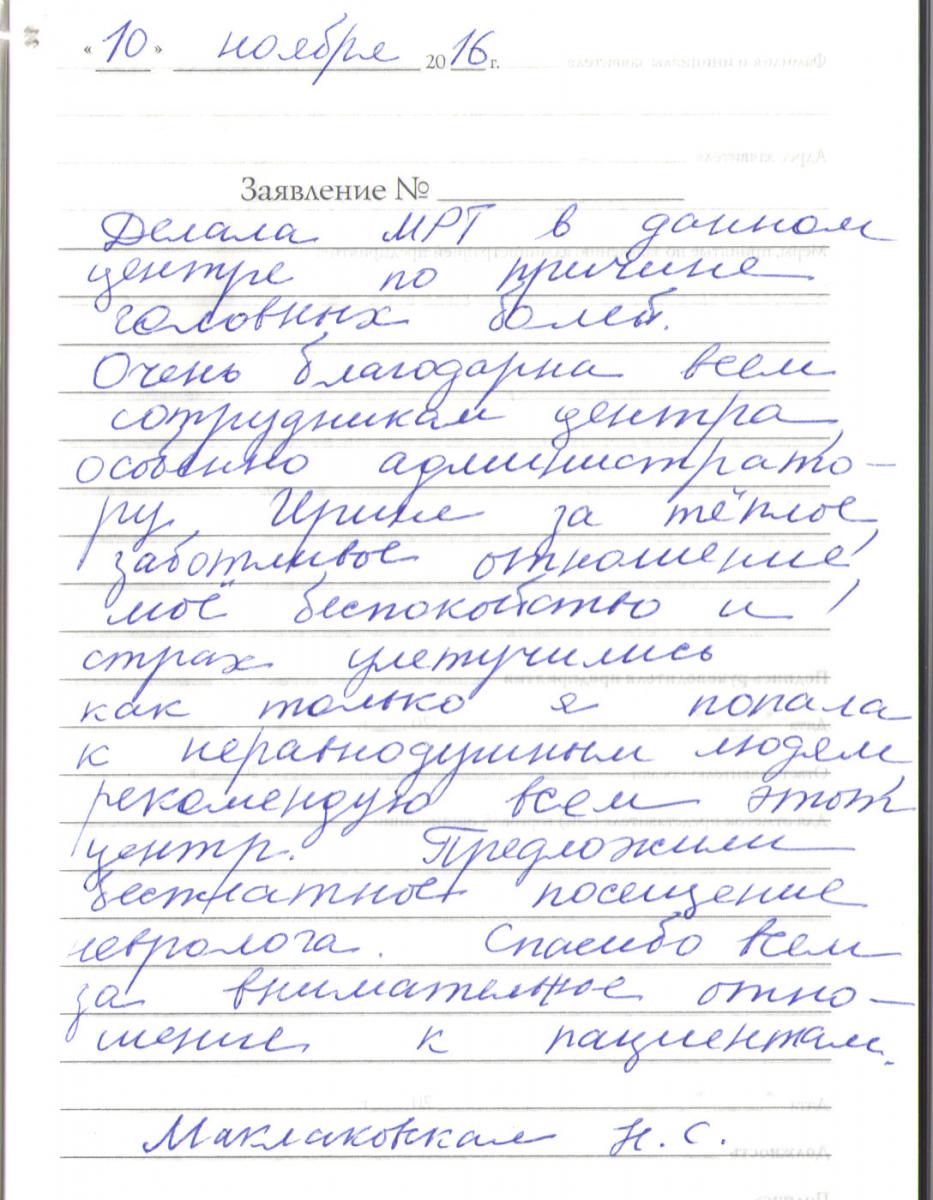 « 10 » ноября 2016 г.
Заявление №
Делала МРТ в данном
центре по причине
головных болей.
Очень благодарна всем
сотрудникам центра,
особенно администрато-
ру, Ирине за тёплое,
заботливое отношение,
моё беспокойство и
страх улетучились
как только я попала
к неравнодушным людям
рекомендую всем этот
центр. Предложили
бесплатное посещение
невролога. Спасибо всем
за внимательное отно-
шение к пациентам.
Н. С.